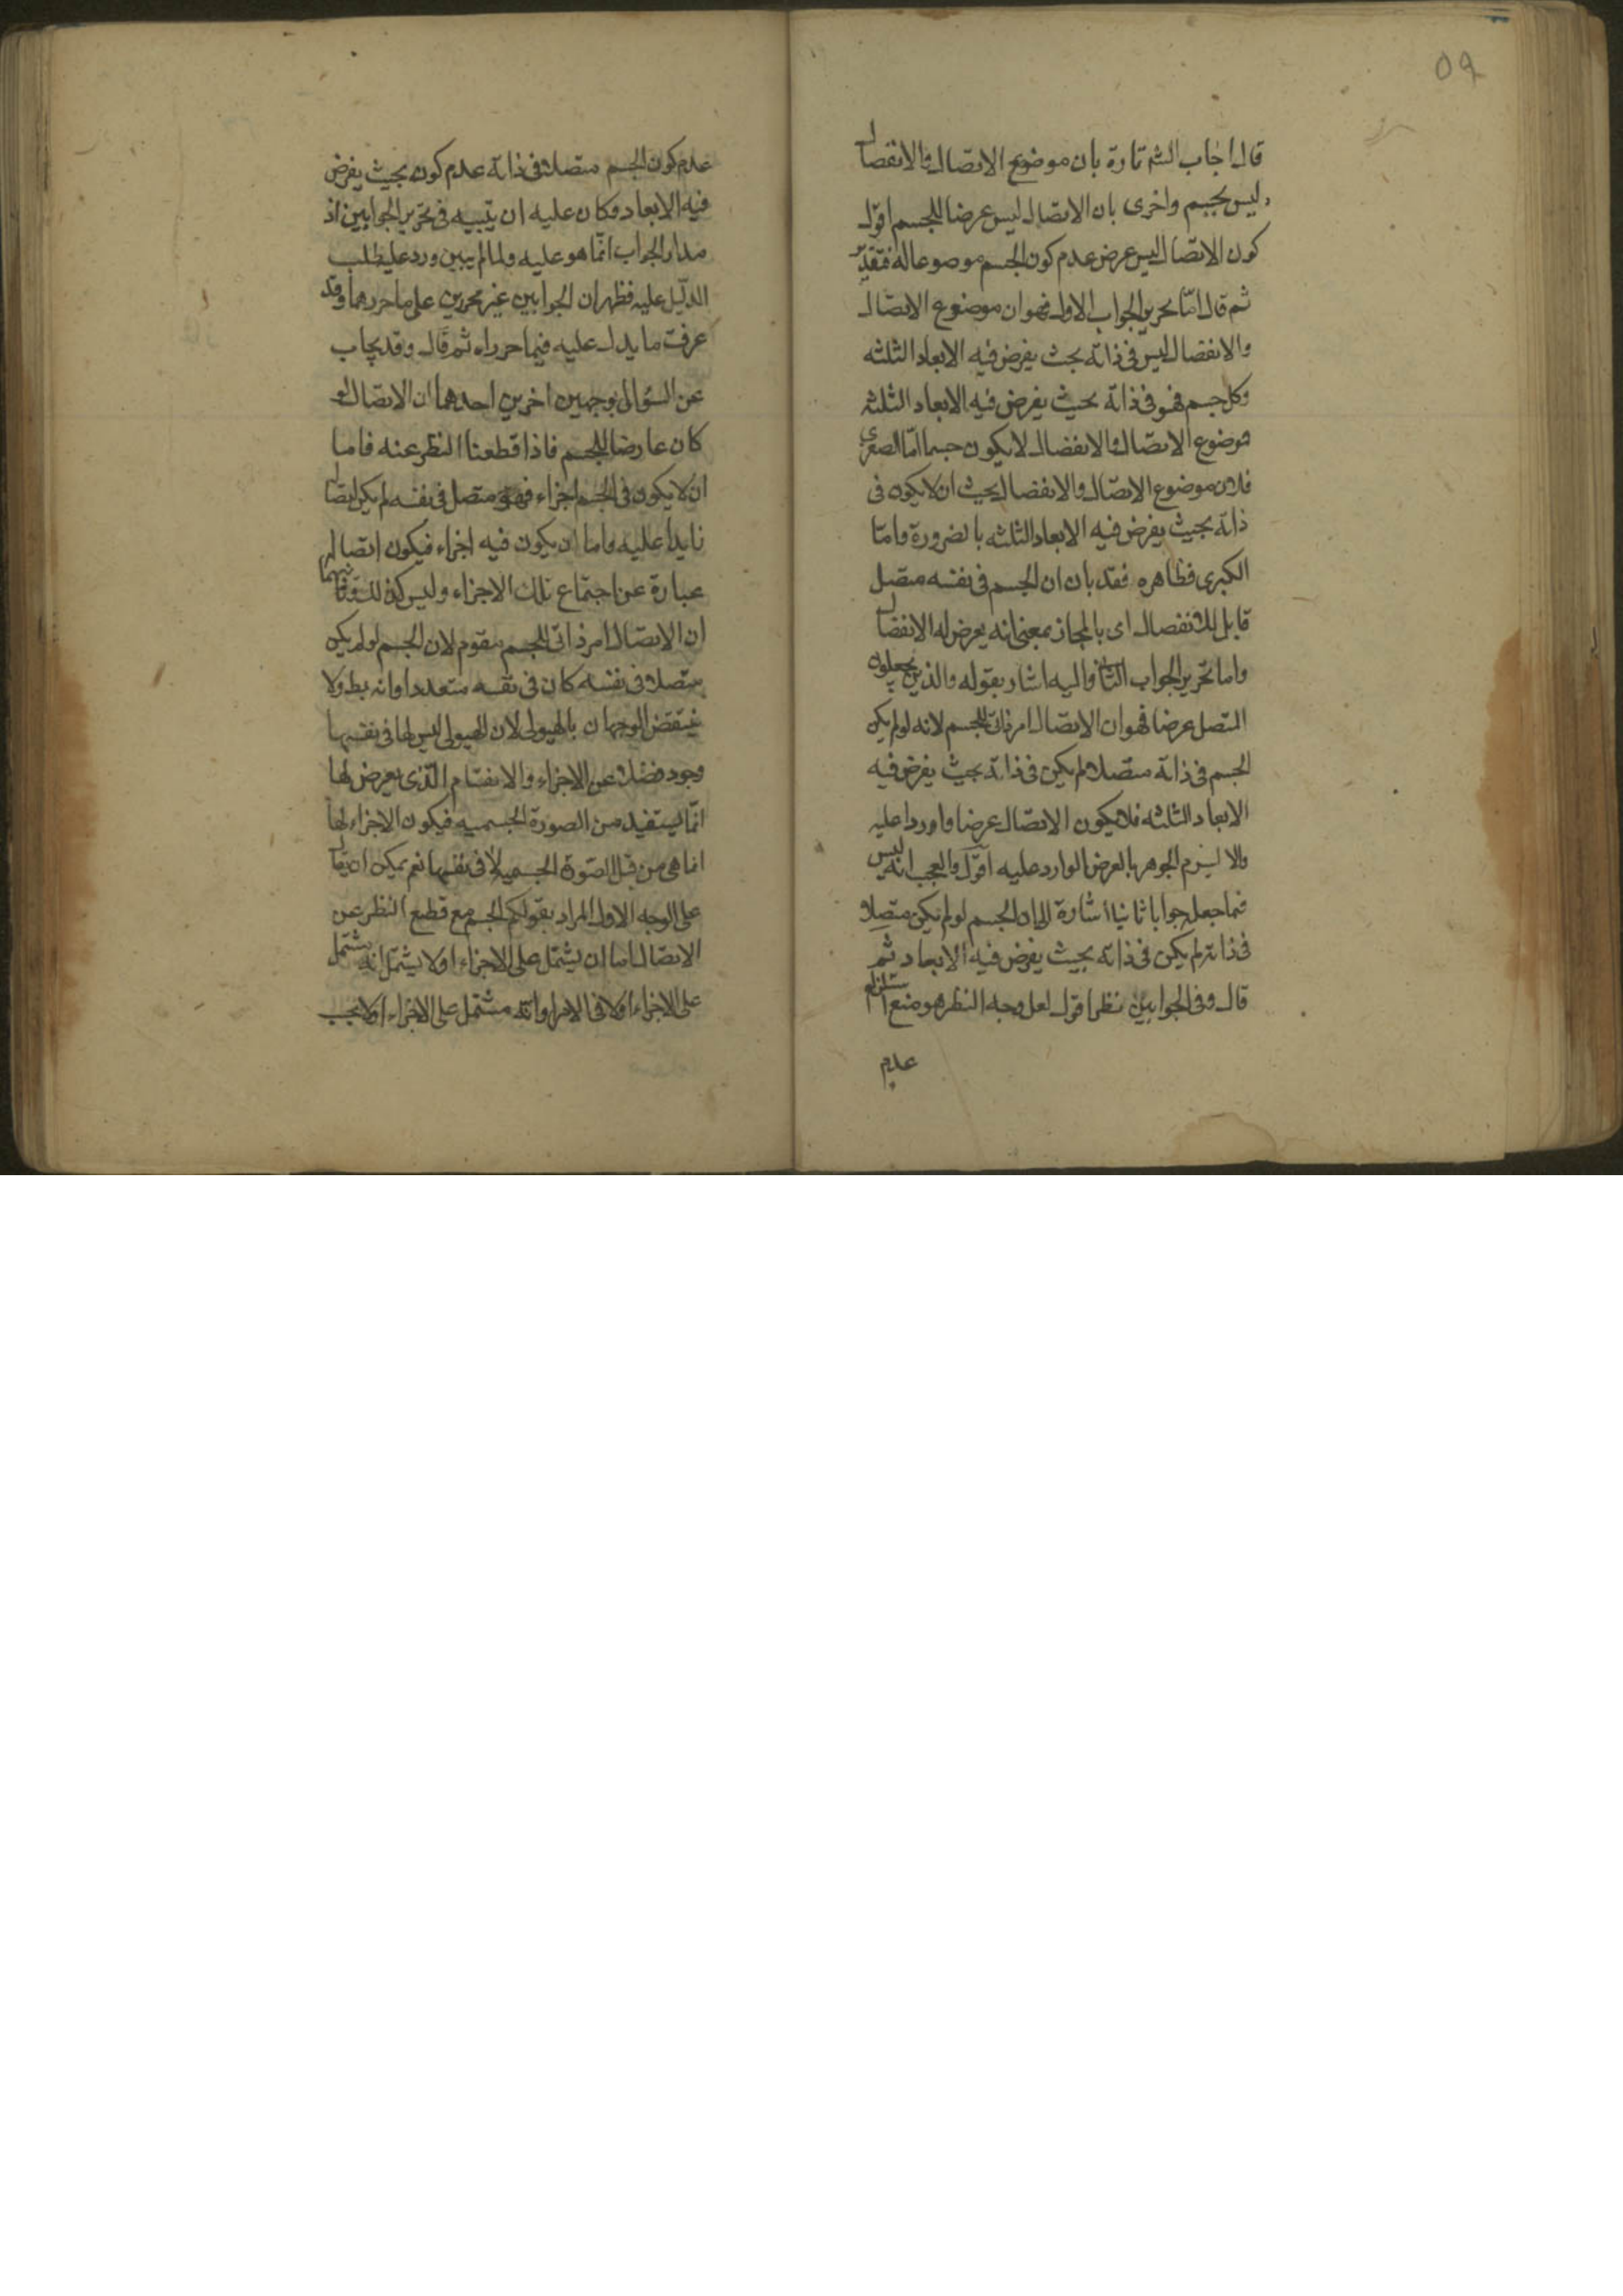 ٥٩
قال اجاب الشه تارة بان موضوع الاتصال والانفصال
ليس بجسم واخرى بان الاتصال ليس عرضا للجسم اقول
كون الاتصال ليس عرض عدم كون الجسم موضوعا له فتقدير
ثم قال اما تحرير الجواب الاول فهو ان موضوع الاتصال
والانفصال ليس فى ذاته بحيث يفرض فيه الابعاد الثلثه
وكل جسم فهو فى ذاته بحيث يفرض فيه الابعاد الثلثه
فوضوع الاتصال والانفصال لا يكون جسما اما الصغرى
فلان موضوع الاتصال والانفصال يجب ان لا يكون فى
ذاته بحيث يفرض فيه الابعاد الثلثه بالضرورة واما
الكبرى فظاهره فقد بان ان الجسم فى نفسه متصل
قابل للانفصال اى بالمجاز بمعنى انه يعرض له الانفصال
واما تحرير الجواب الثانى واليه اشار بقوله والذين يجعلون
المتصل عرضا فهو ان الاتصال امر ذاتى للجسم لانه لو لم يكن
الجسم فى ذاته متصلا لم يكن فى ذاته بحيث يفرض فيه
الابعاد الثلثه فلا يكون الاتصال عرضا واورد عليه
والا ليزم الجوهر بالعرض الوارد عليه اقول والعجب انه ليس
فما جعل جوابا ثانيا اشارة الى ان الجسم لو لم يكن متصلا
فى ذاته لم يكن فى ذاته بحيث يفرض فيه الابعاد ثم
قال وفى الجوابين نظر اقول لعل وجه النظر هو منع استلزام
عدم
عدم كون الجسم متصلا فى ذاته عدم كونه بحيث يفرض
فيه الابعاد وكان عليه ان يبينه فى تحرير الجوابين اذ
مدار الجواب انما هو عليه ولما لم يبين ورد عليه طلب
الدليل عليه فظهر ان الجوابين غير محررين على ما حررهما وقد
عرفت ما يدل عليه فيما حرراه ثم قال وقد يجاب
عن السؤال بوجهين اخرين احدهما ان الاتصال لو
كان عارضا للجسم فاذا قطعنا النظر عنه فاما
ان لا يكون فى الجسم اجزاء فهو متصل فى نفسه لم يكن اتصال
زايدا عليه واما ان يكون فيه اجزاء فيكون اتصاله
عبارة عن اجتماع تلك الاجزاء وليس كذلك وثانيهما
ان الاتصال امر ذاتى للجسم مقوم لان الجسم لو لم يكن
متصلا فى نفسه كان فى نفسه متعددا وانه بط ولا
ينتقض الوجهان بالهيولى لان الهيولى ليس لها فى نفسها
وجود فضلا عن الاجزاء والانقسام الذى يعرض لها
انما يستفيد من الصورة الجسميه فيكون الاجزاء لها
انما هى من قبل الصورة الجسميه لا فى نفسها نعم يمكن ان يقال
على الوجه الاول المراد بقولكم الجسم مع قطع النظر عن
الاتصال اما ان يشتمل على الاجزاء او لا يشتمل انه يشتمل
على الاجزاء او لا فى الامر او انه مشتمل على الاجزاء او لا بحسب